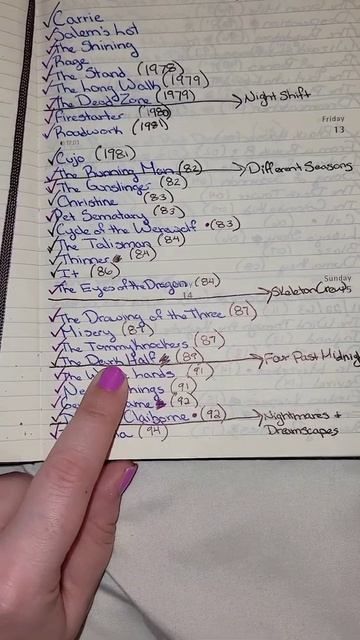 ✓Carrie
✓Salem's Lot
✓The Shining
✓Rage
✓The Stand (1978)
✓The Long Walk (1979)
✓The Dead Zone (1979) → Night Shift
✓Firestarter (1980)
Friday
✓Roadwork (1981)
13
✓Cujo (1981)
✓The Running Man (82) → Different Seasons
✓The Gunslinger (82)
✓Christine (83)
✓Pet Sematary (83)
✓Cycle of the Werewolf •(83)
✓The Talisman (84)
✓Thinner (84)
✓It (86)
Sunday
✓The Eyes of the Dragon (84)
14 → Skeleton Crew
✓The Drawing of the Three (87)
✓Misery (87)
✓The Tommyknockers (87)
✓The Dark Half (89) → Four Past Midnig
✓The hands (91)
✓Ne things (91)
ame (92)
Claiborne • (92) → Nightmares +
Dreamscapes
a (94)